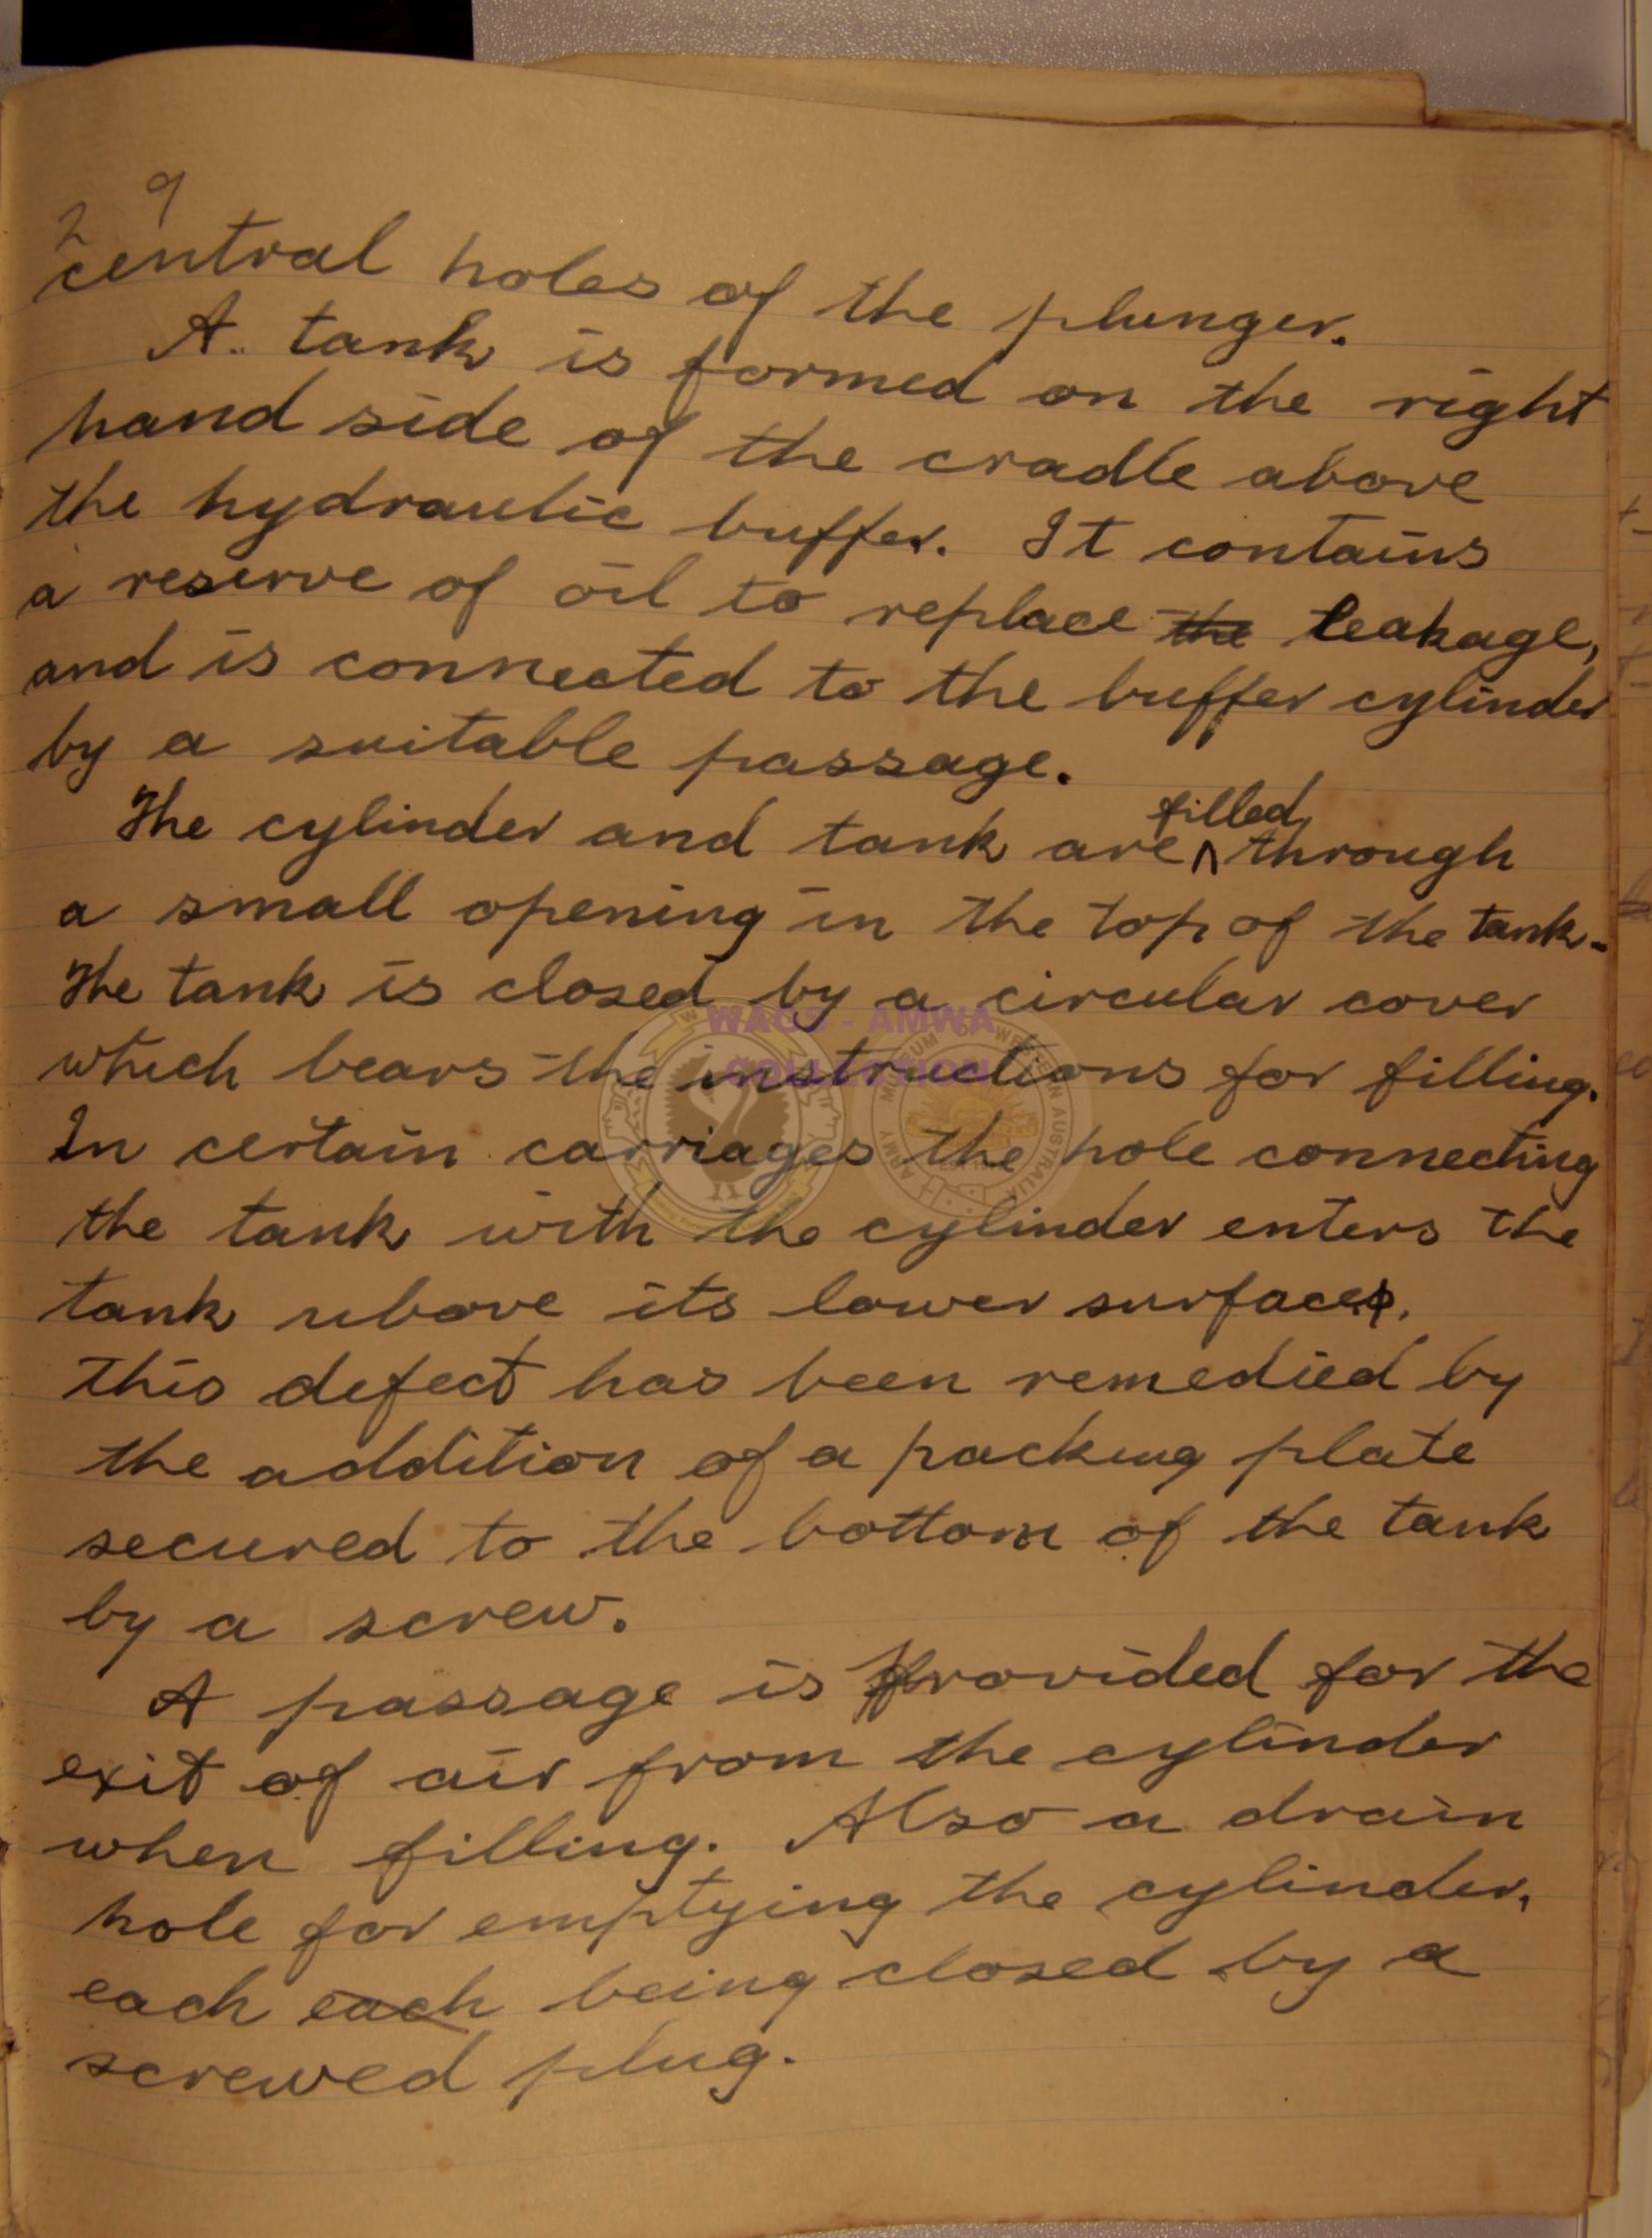 29
central holes of the plunger.
A. tank is formed on the right
hand side of the cradle above
the hydraulic buffer. It contains
a reserve of oil to replace the leakage,
and is connected to the buffer cylinder
by a suitable passage.
filled
The cylinder and tank are ∧ through
a small opening in the top of the tank.
The tank is closed by a circular cover
which bears the instructions for filling.
In certain carriages the hole connecting
the tank with the cylinder enters the
tank above its lower surface.
This defect has been remedied by
the addition of a packing plate
secured to the bottom of the tank
by a screw.
A passage is provided for the
exit of air from the cylinder
when filling. Also a drain
hole for emptying the cylinder,
each each being closed by a
screwed plug.
WAGS - AMWA
COLLECTION
ARMY MUSEUM WESTERN AUSTRALIA